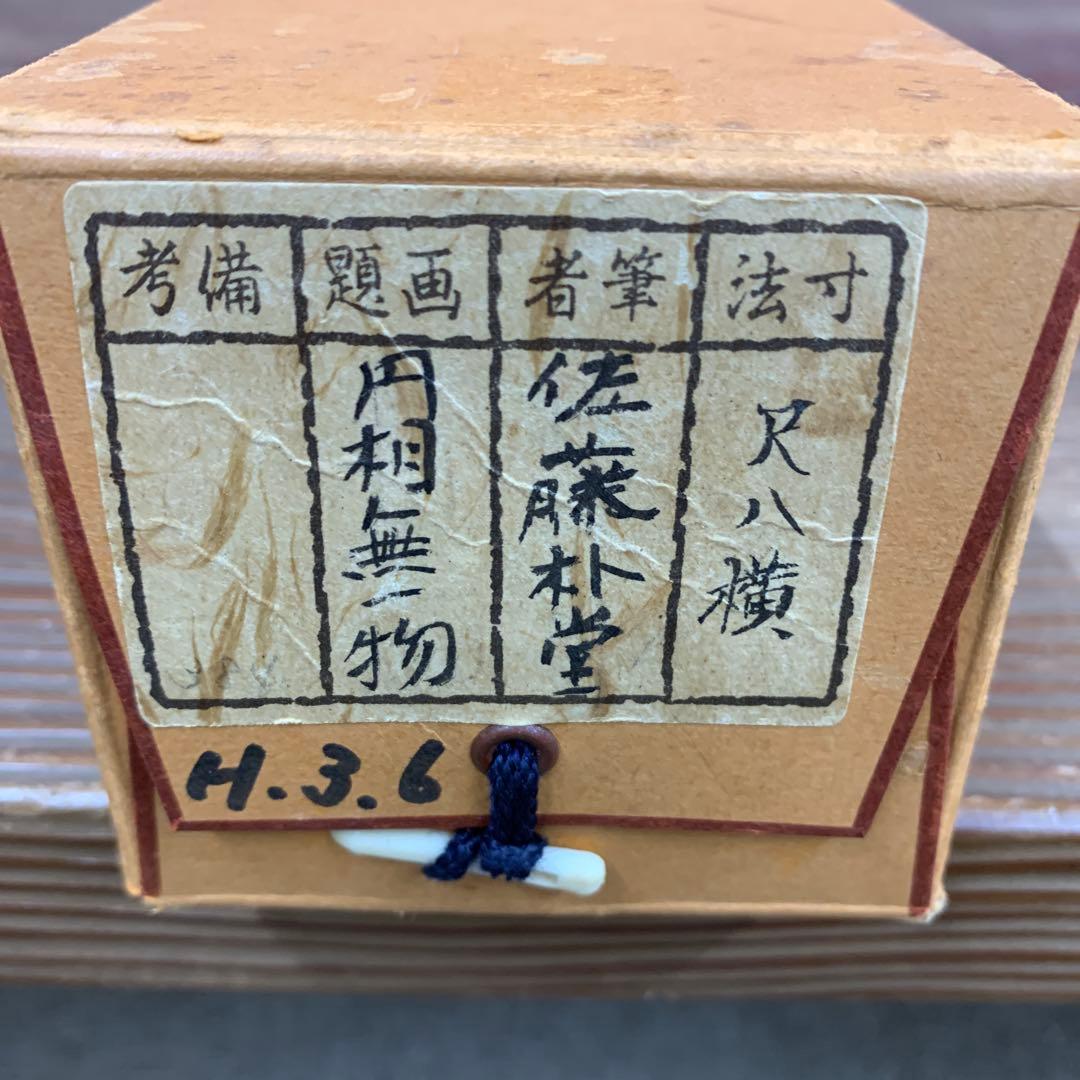 寸法
尺八横
筆者
佐藤朴堂
画題
円相無一物
備考
H.3.6